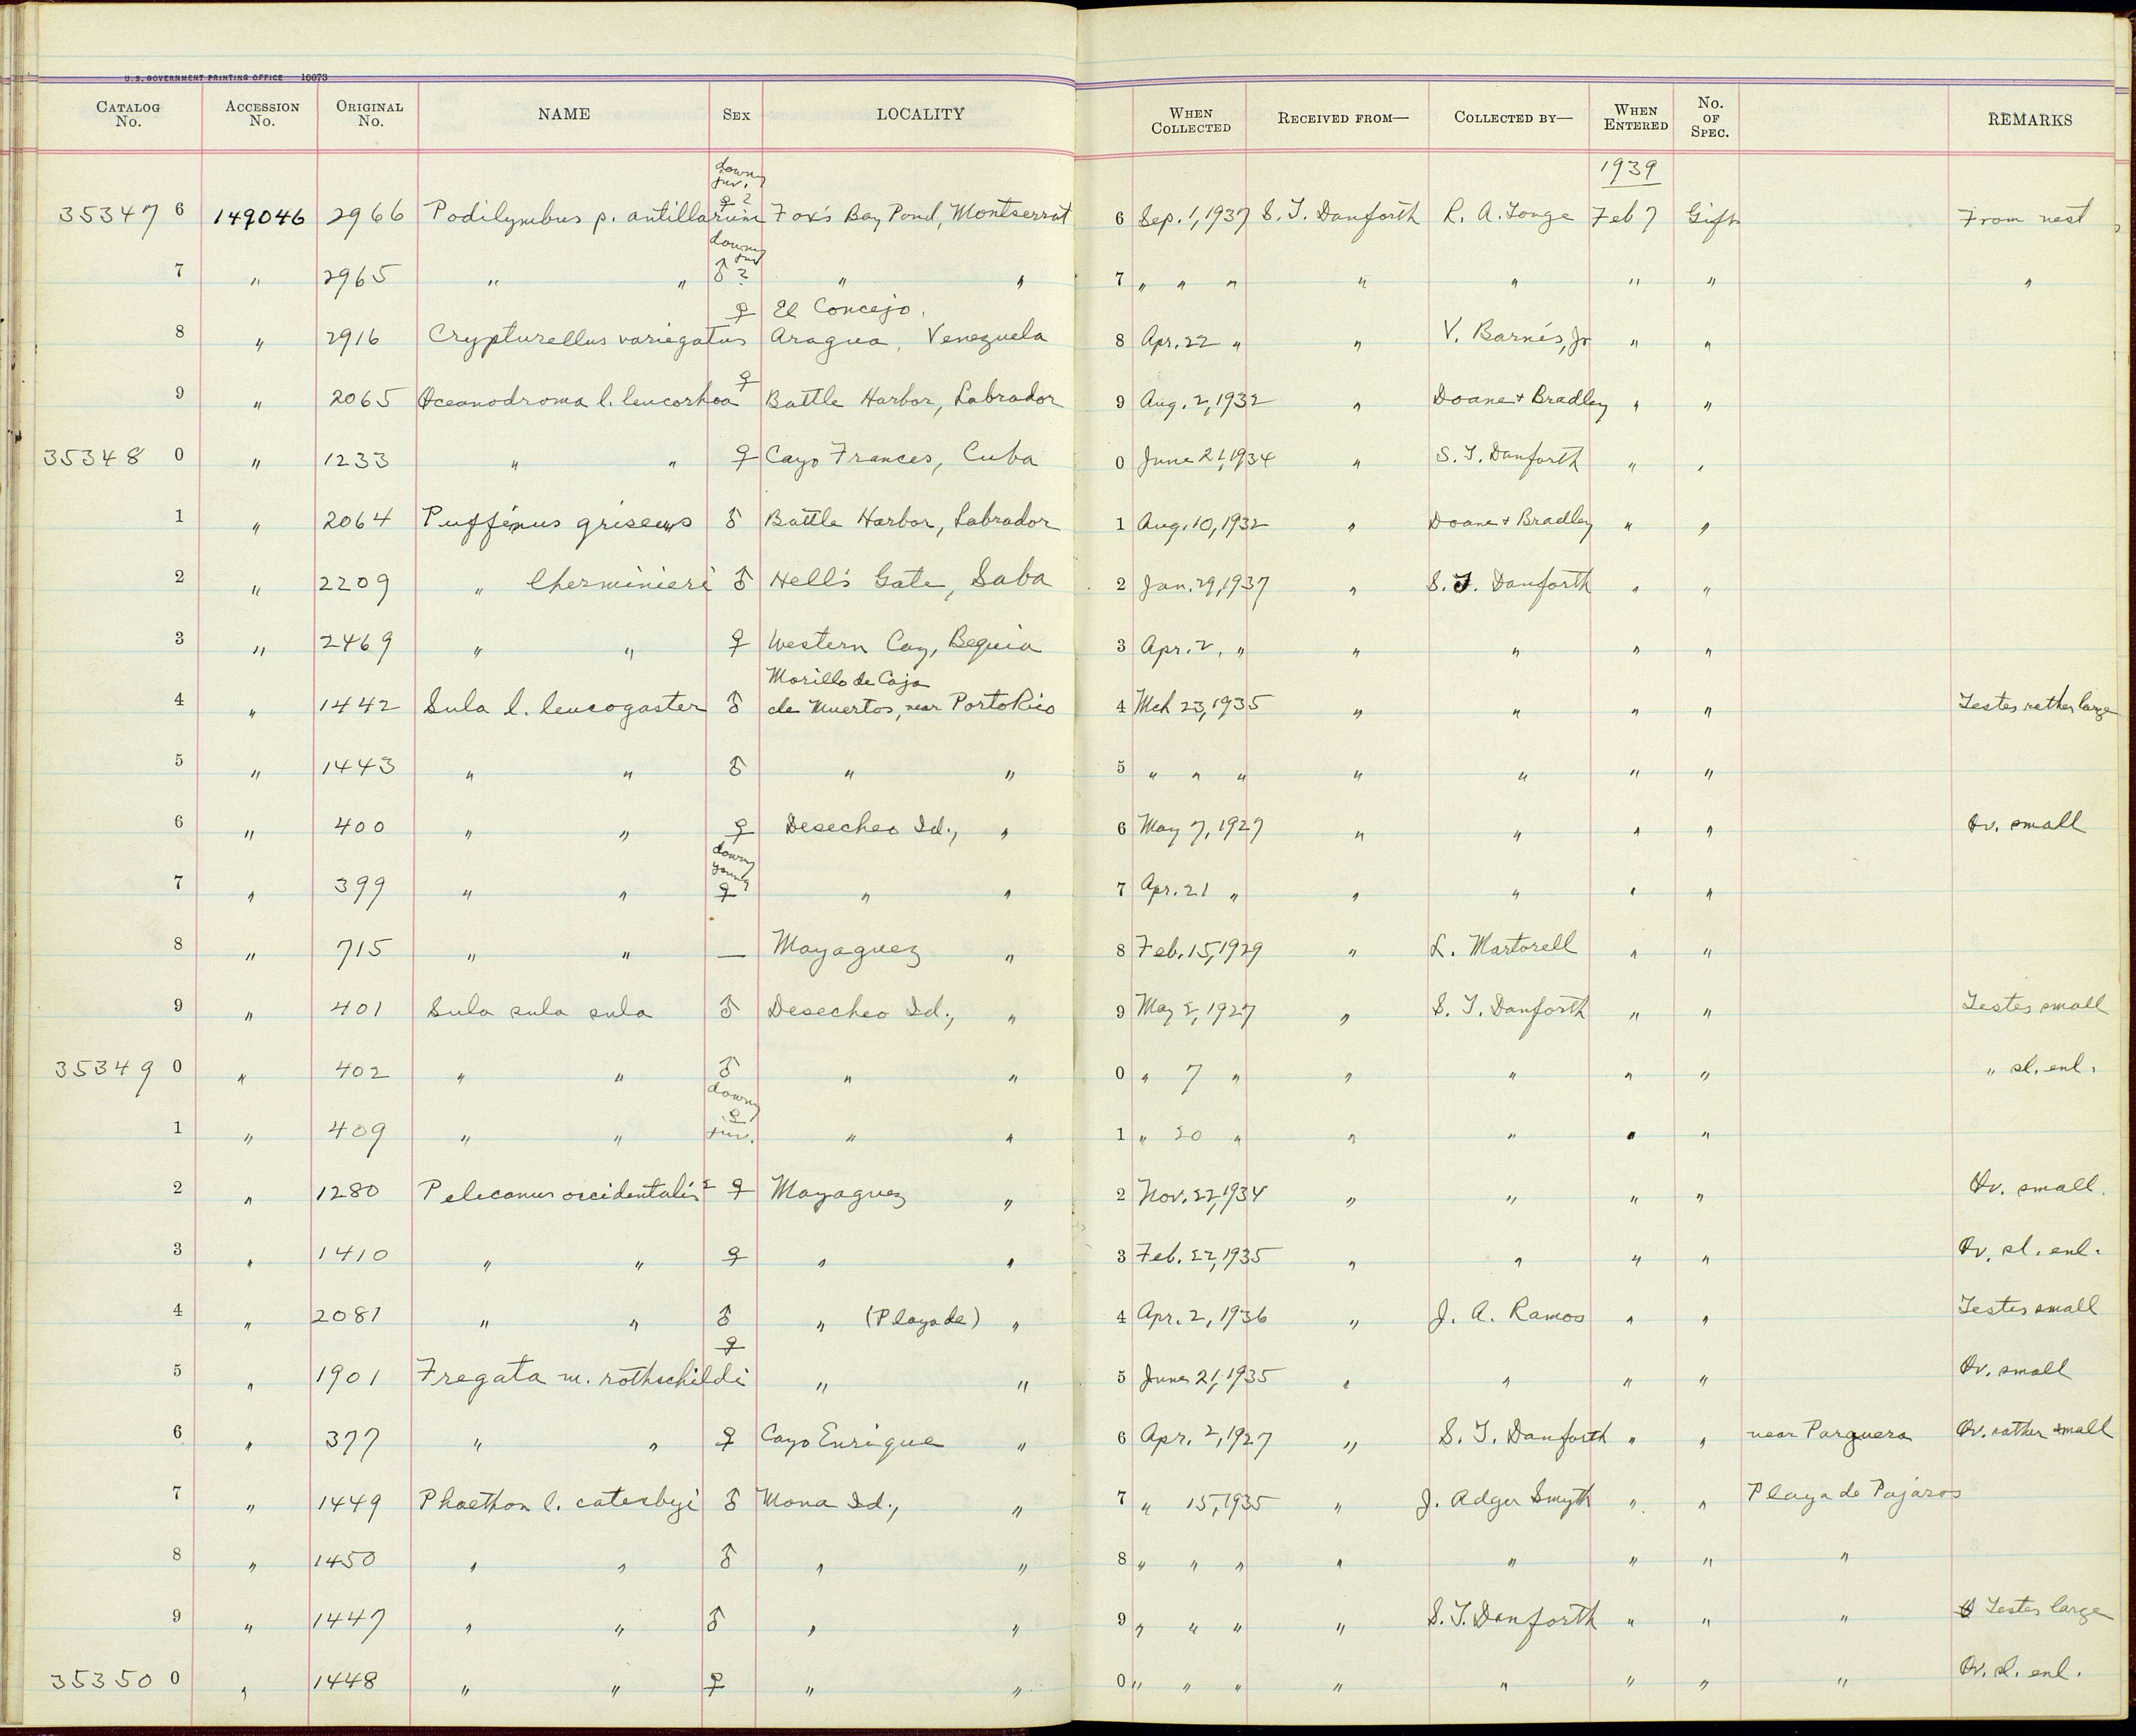 U.S. GOVERNMENT PRINTING OFFICE 10073
CATALOG No. ACCESSION No. ORIGINAL No. NAME SEX LOCALITY WHEN COLLECTED RECEIVED FROM— COLLECTED BY— WHEN ENTERED No. OF SPEC. REMARKS
1939
downy juv.
35347 6 149046 2966 Podilymbus p. antillarum ♀? Fox's Bay Pond, Montserrat 6 Sep. 1, 1937 S. T. Danforth R. A. Tonge Feb 7 Gift From nest
downy juv
7 " 2965 " " ♂? " " 7 " " " " " " " "
♀ El Concejo,
8 " 2916 Crypturellus variegatus Aragua, Venezuela 8 Apr. 22 " " V. Barnés, Jr " "
9 " 2065 Oceanodroma l. leucorhoa ♀ Battle Harbor, Labrador 9 Aug. 2, 1932 " Doane + Bradley " "
35348 0 " 1233 " " ♀ Cayo Frances, Cuba 0 June 21, 1934 " S. T. Danforth " "
1 " 2064 Puffinus griseus ♂ Battle Harbor, Labrador 1 Aug. 10, 1932 " Doane + Bradley " "
2 " 2209 " lherminieri ♂ Hell's Gate, Saba 2 Jan. 29, 1937 " S. T. Danforth " "
3 " 2469 " " ♀ Western Cay, Bequia 3 Apr. 2, " " " " "
Morillo de Caja
4 " 1442 Sula l. leucogaster ♂ de Muertos, near Porto Rico 4 Mch 23, 1935 " " " " Testes rather large
5 " 1443 " " ♂ " " 5 " " " " " " "
6 " 400 " " ♀ Desecheo Id., " 6 May 7, 1927 " " " " Ov. small
downy young
7 " 399 " " ♀ " " 7 Apr. 21 " " " " "
8 " 715 " " — Mayaguez " 8 Feb. 15, 1929 " L. Martorell " "
9 " 401 Sula sula sula ♂ Desecheo Id., " 9 May 2, 1927 " S. T. Danforth " " Testes small
35349 0 " 402 " " ♂ " " 0 " 7 " " " " " " sl. enl.
downy
1 " 409 " " ♀ juv. " " 1 " 20 " " " " "
2 " 1280 Pelecanus occidentalis ♀ Mayaguez " 2 Nov. 22, 1934 " " " " Ov. small.
3 " 1410 " " ♀ " " 3 Feb. 22, 1935 " " " " Ov. sl. enl.
4 " 2081 " " ♂ " (Playa de) " 4 Apr. 2, 1936 " J. A. Ramos " " Testes small
♀
5 " 1901 Fregata m. rothschildi " " 5 June 21, 1935 " " " " Ov. small
6 " 377 " " ♀ Cayo Enrique " 6 Apr. 2, 1927 " S. T. Danforth " " near Parguera Ov. rather small
7 " 1449 Phaethon l. catesbyi ♂ Mona Id., " 7 " 15, 1935 " J. Adger Smyth " " Playa de Pajaros
8 " 1450 " " ♂ " " 8 " " " " " " " "
9 " 1447 " " ♂ " " 9 " " " " S. T. Danforth " " " Testes large
35350 0 " 1448 " " ♀ " " 0 " " " " " " " " Ov. sl. enl.